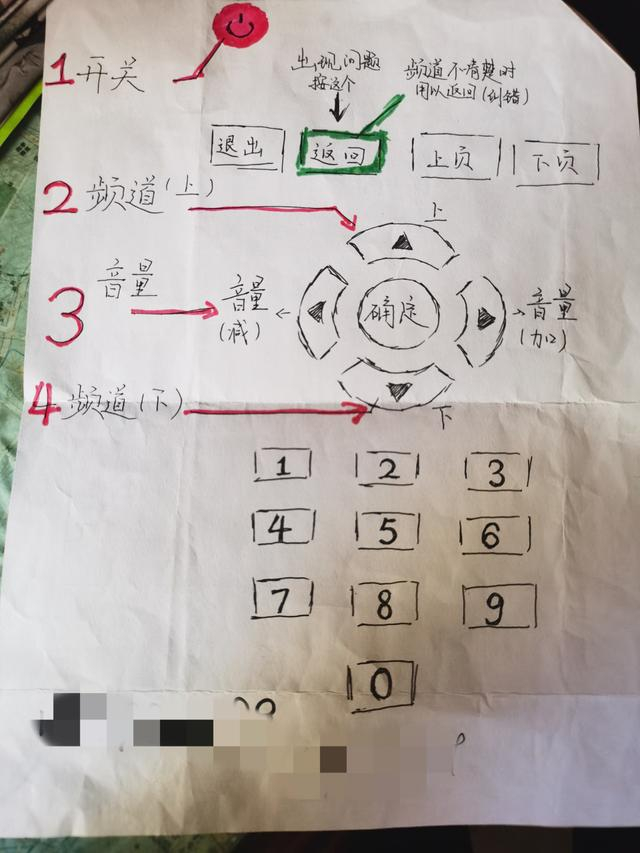 1 开关
出现问题
按这个
频道不清楚时
用以返回(纠错)
退出 返回 上页 下页
2 频道(上)
上
3 音量
音量
(减)
确定
音量
(加)
4 频道(下)
下
1 2 3
4 5 6
7 8 9
0